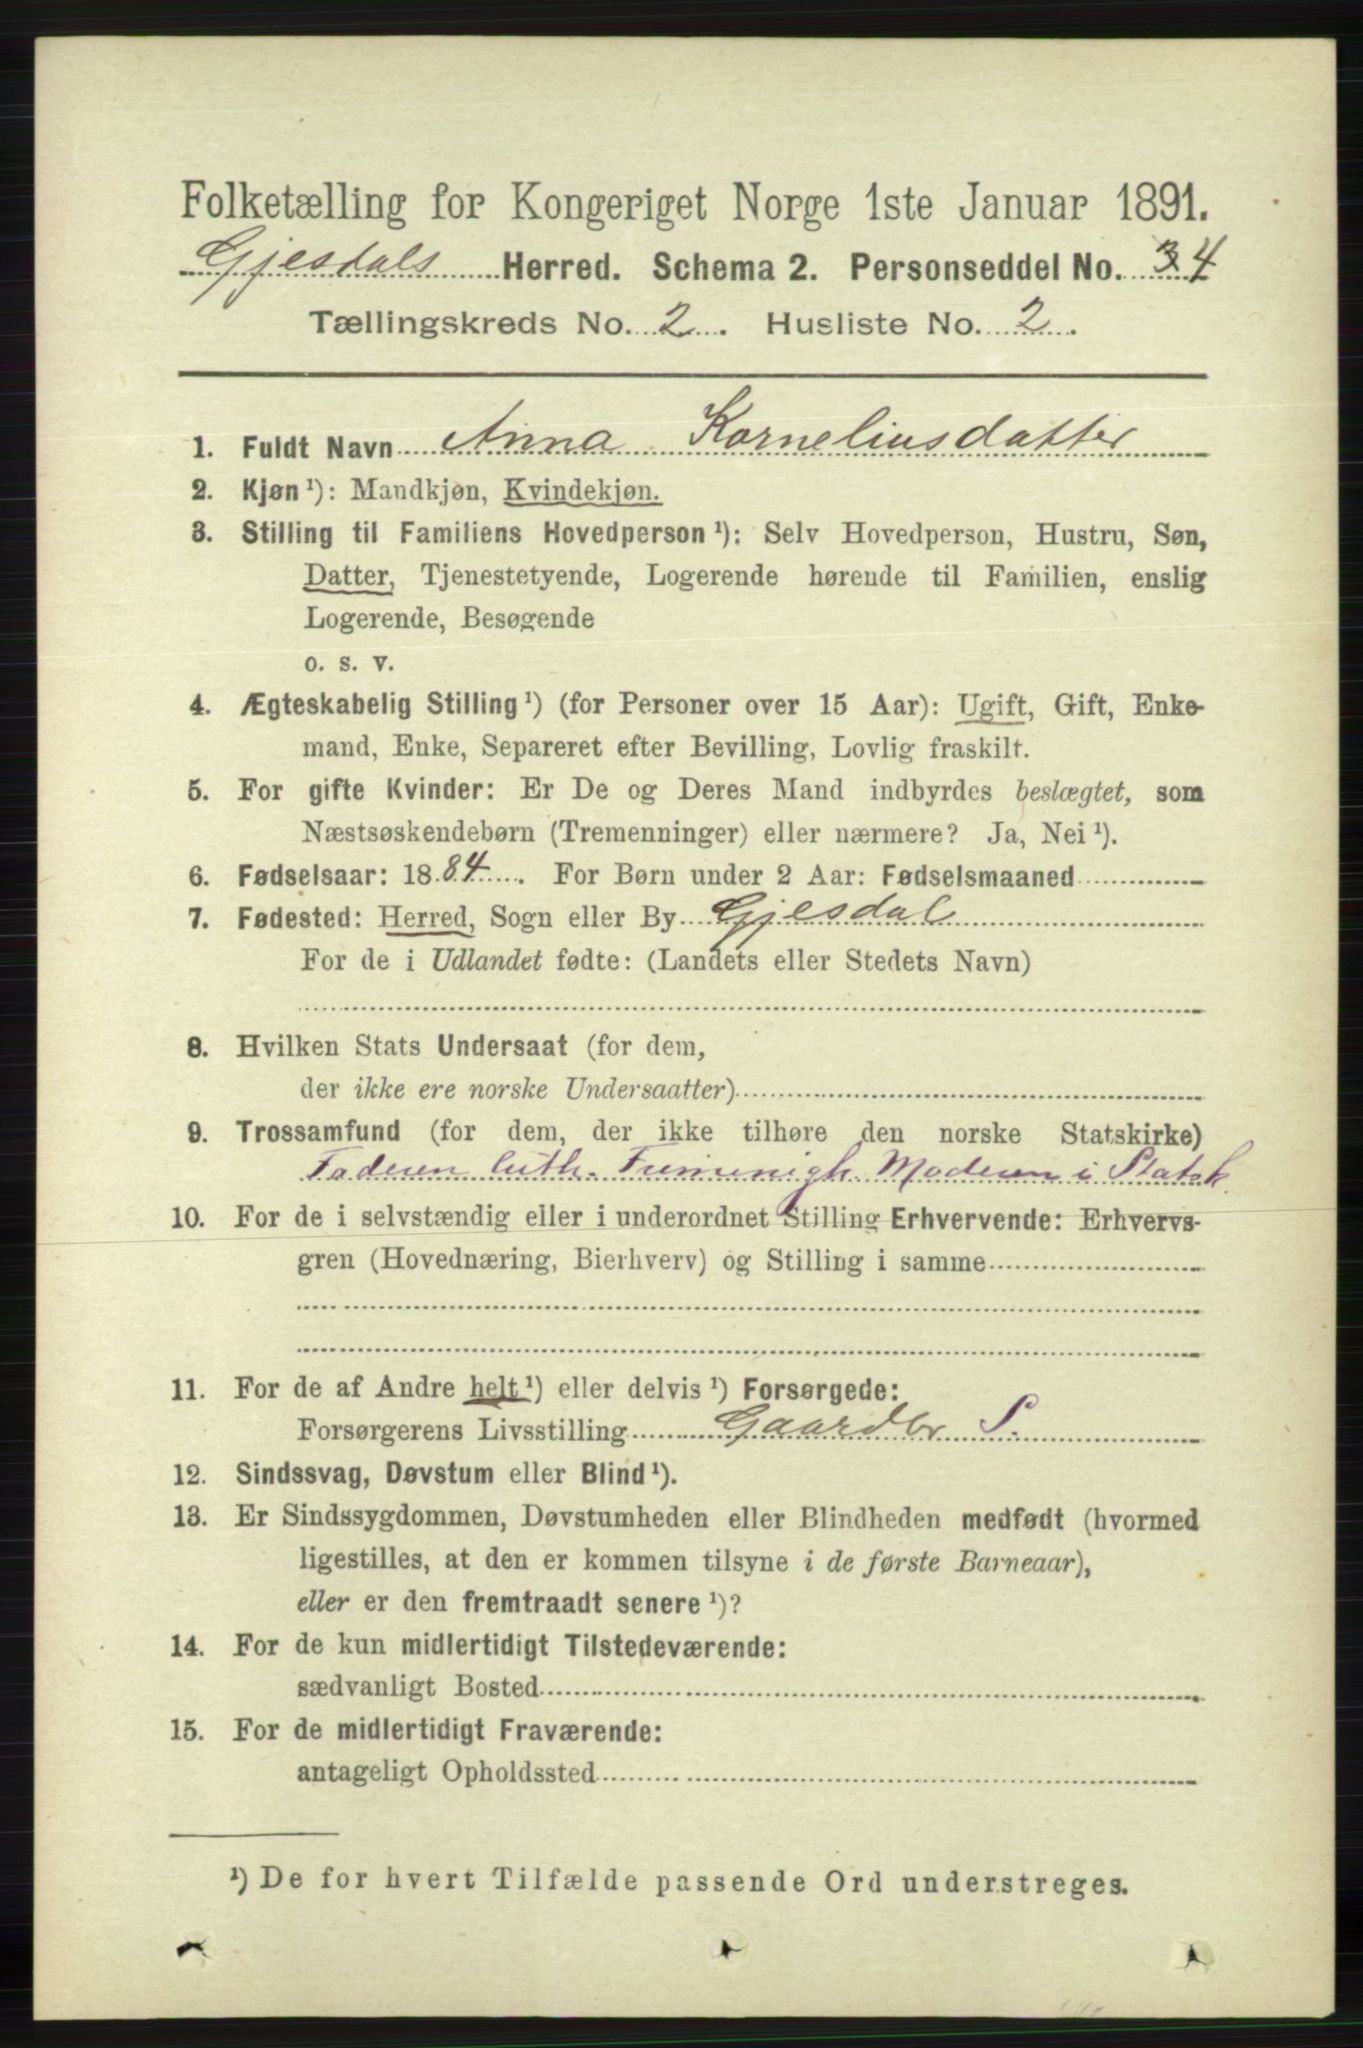 Folketælling for Kongeriget Norge 1ste Januar 1891.
Gjesdals Herred. Schema 2. Personseddel No. 34
Tællingskreds No. 2. Husliste No. 2.
1. Fuldt Navn Anna Korneliusdatter
2. Kjøn ¹): Mandkjøn, Kvindekjøn.
3. Stilling til Familiens Hovedperson ¹): Selv Hovedperson, Hustru, Søn,
Datter, Tjenestetyende, Logerende hørende til Familien, enslig
Logerende, Besøgende
o. s. v.
4. Ægteskabelig Stilling ¹) (for Personer over 15 Aar): Ugift, Gift, Enke-
mand, Enke, Separeret efter Bevilling, Lovlig fraskilt.
5. For gifte Kvinder: Er De og Deres Mand indbyrdes beslægtet, som
Næstsøskendebørn (Tremenninger) eller nærmere? Ja, Nei ¹).
6. Fødselsaar: 1884. For Børn under 2 Aar: Fødselsmaaned
7. Fødested: Herred, Sogn eller By Gjesdal
For de i Udlandet fødte: (Landets eller Stedets Navn)
8. Hvilken Stats Undersaat (for dem,
der ikke ere norske Undersaatter)
9. Trossamfund (for dem, der ikke tilhøre den norske Statskirke)
Faderen luth. Frimenigh. Moderen i Statsk.
10. For de i selvstændig eller i underordnet Stilling Erhvervende: Erhvervs-
gren (Hovednæring, Bierhverv) og Stilling i samme
11. For de af Andre helt ¹) eller delvis ¹) Forsørgede:
Forsørgerens Livsstilling Gaardbr S.
12. Sindssvag, Døvstum eller Blind ¹).
13. Er Sindssygdommen, Døvstumheden eller Blindheden medfødt (hvormed
ligestilles, at den er kommen tilsyne i de første Barneaar),
eller er den fremtraadt senere ¹)?
14. For de kun midlertidigt Tilstedeværende:
sædvanligt Bosted
15. For de midlertidigt Fraværende:
antageligt Opholdssted
¹) De for hvert Tilfælde passende Ord understreges.